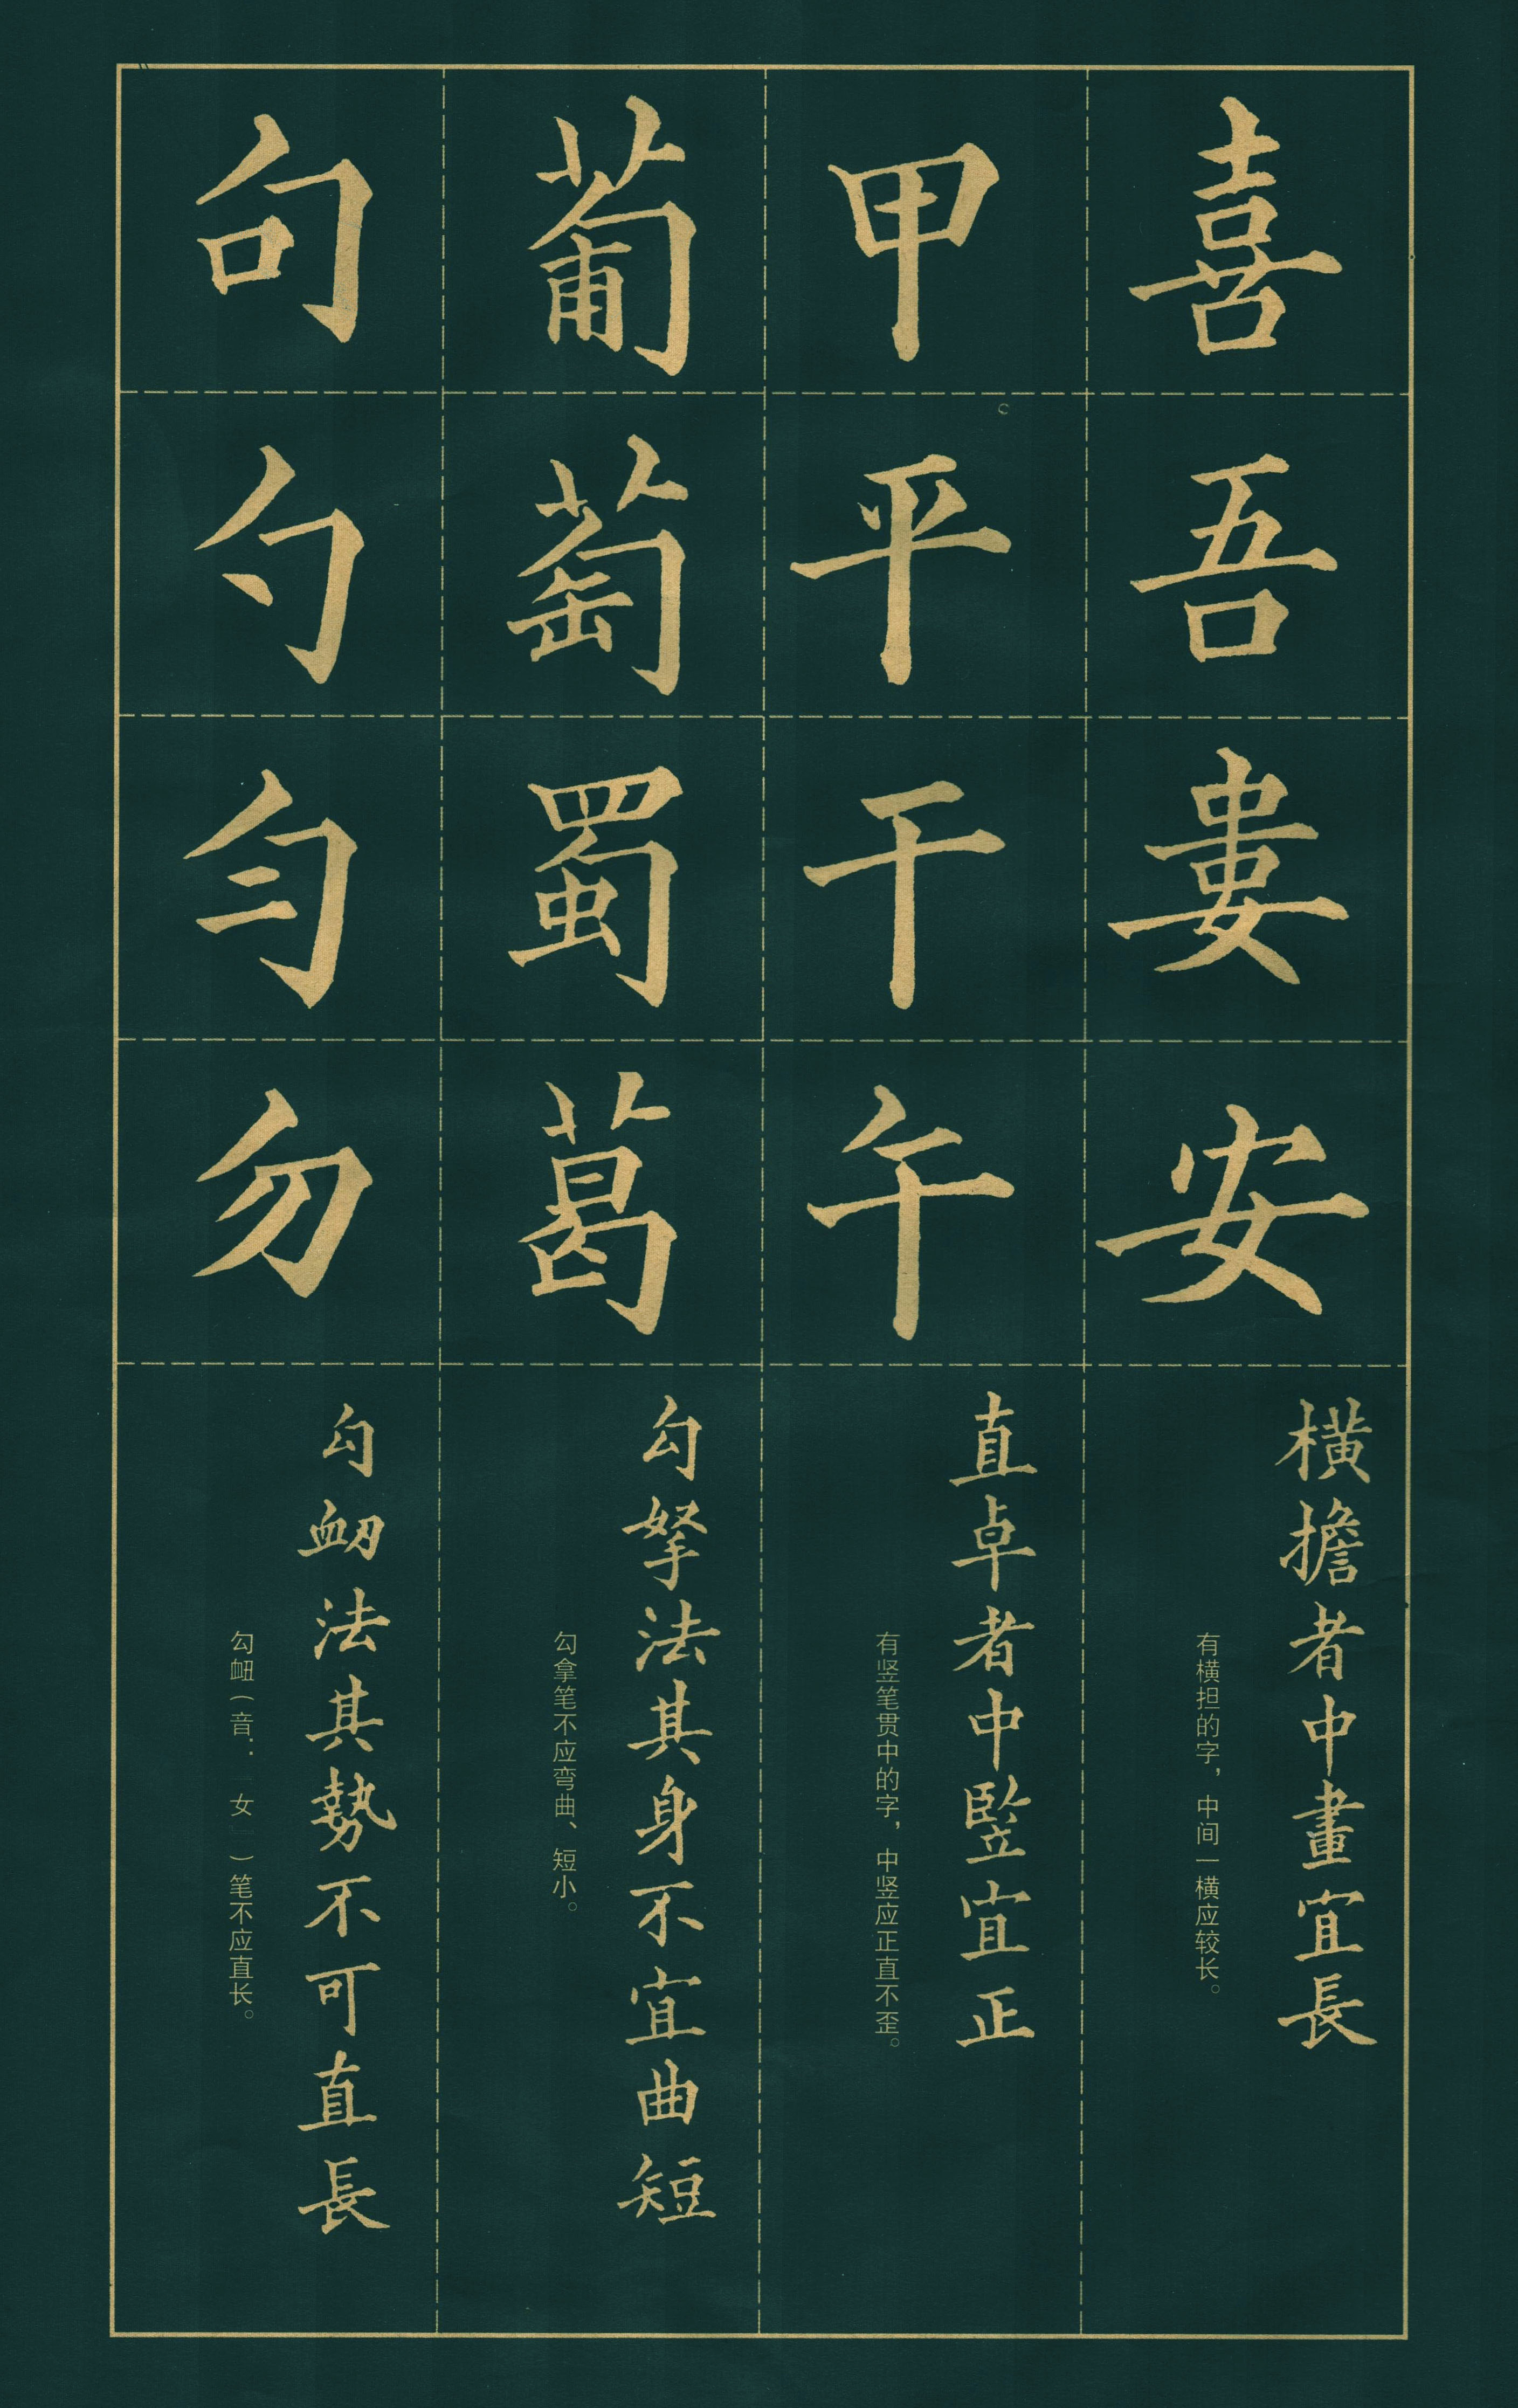 喜吾婁安
橫擔者中畫宜長
有横担的字，中间一横应较长。
甲平干午
直卓者中竪宜正
有竖笔贯中的字，中竖应正直不歪。
葡萄蜀葛
勾拏法其身不宜曲短
勾拿笔不应弯曲、短小。
句勺匀勿
勾衂法其勢不可直長
勾衄（音：女）笔不应直长。